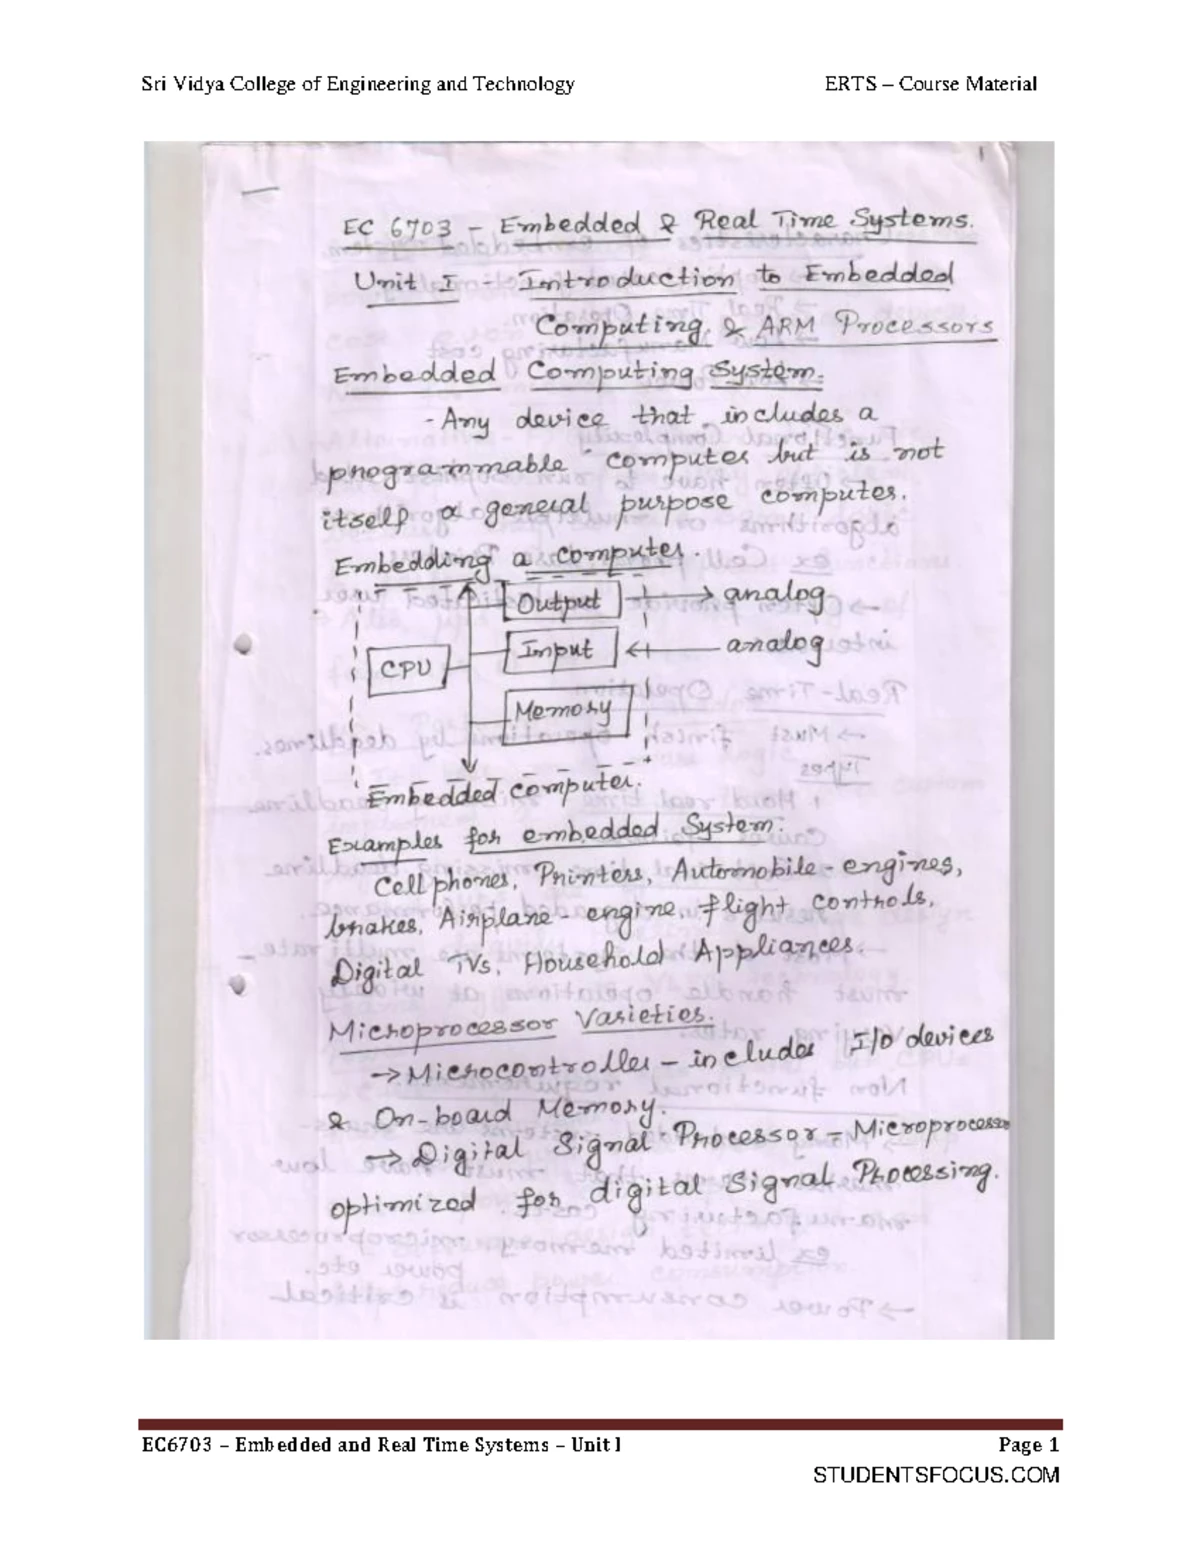 Sri Vidya College of Engineering and Technology ERTS – Course Material
1
EC 6703 - Embedded & Real Time Systems.
Unit I - Introduction to Embedded
Computing & ARM Processors
Embedded Computing System.
- Any device that includes a
programmable computer but is not
itself a general purpose computer.
Embedding a computer.
Output analog
Input analog
CPU
Memory
Embedded computer.
Examples for embedded System:
Cell phones, Printers, Automobile - engines,
brakes, Airplane - engine, flight controls,
Digital TVs, Household Appliances.
Microprocessor Varieties.
→ Microcontroller - includes I/O devices
& On-board Memory.
→ Digital Signal Processor - Microprocessor
optimized for digital Signal Processing.
EC6703 – Embedded and Real Time Systems – Unit I Page 1
STUDENTSFOCUS.COM